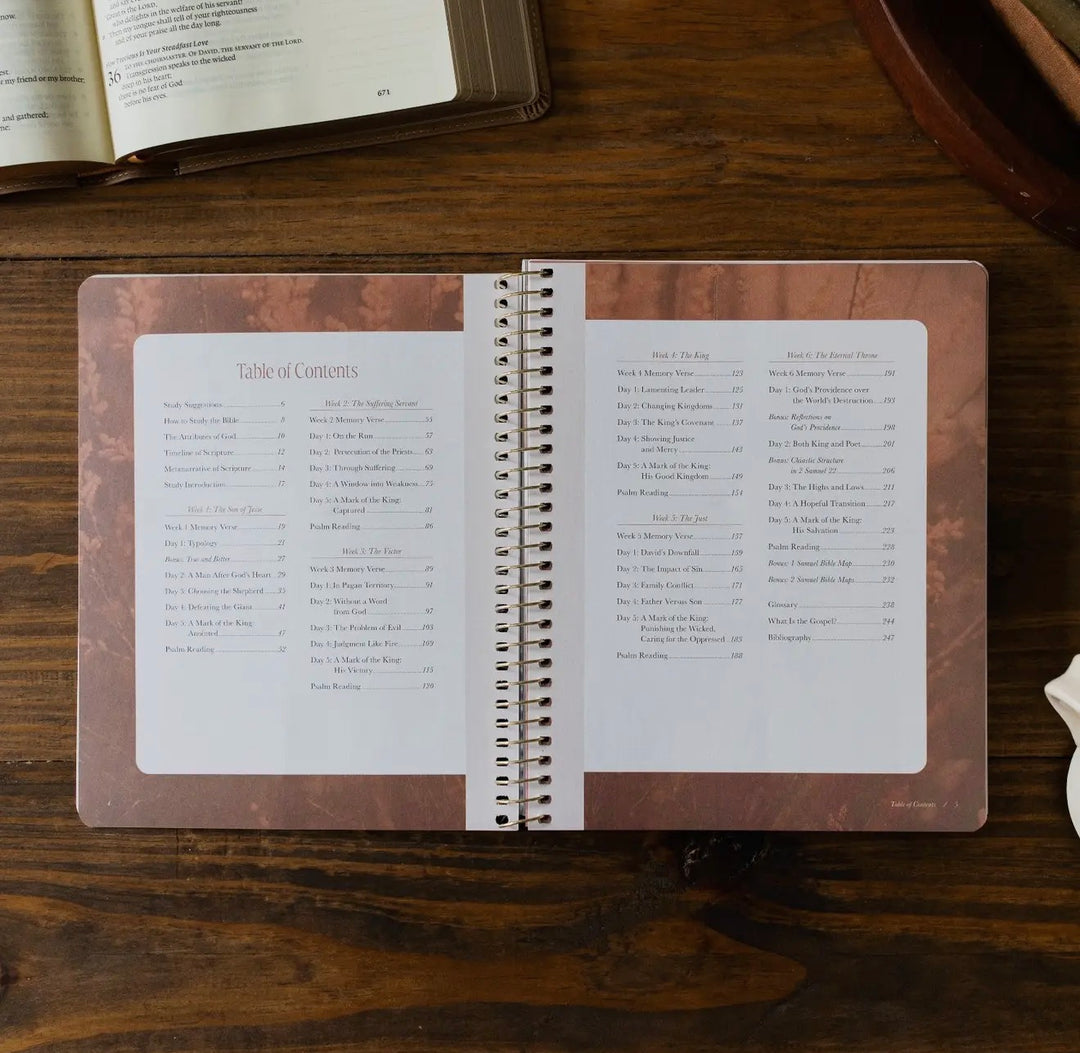 now.
est.
e my friend or my brother;
and gathered;
ne;
Great is the LORD,
who delights in the welfare of his servant!
Then my tongue shall tell of your righteousness
and of your praise all the day long.
How Precious Is Your Steadfast Love
TO THE CHOIRMASTER. OF DAVID, THE SERVANT OF THE LORD.
36 Transgression speaks to the wicked
deep in his heart;
there is no fear of God
before his eyes.
671
Table of Contents
Study Suggestions 6
How to Study the Bible 8
The Attributes of God 10
Timeline of Scripture 12
Metanarrative of Scripture 14
Study Introduction 17
Week 1: The Son of Jesse
Week 1 Memory Verse 19
Day 1: Typology 21
Bonus: True and Better 27
Day 2: A Man After God's Heart 29
Day 3: Choosing the Shepherd 35
Day 4: Defeating the Giant 41
Day 5: A Mark of the King:
Anointed 47
Psalm Reading 52
Week 2: The Suffering Servant
Week 2 Memory Verse 55
Day 1: On the Run 57
Day 2: Persecution of the Priests 63
Day 3: Through Suffering 69
Day 4: A Window into Weakness 75
Day 5: A Mark of the King:
Captured 81
Psalm Reading 86
Week 3: The Victor
Week 3 Memory Verse 89
Day 1: In Pagan Territory 91
Day 2: Without a Word
from God 97
Day 3: The Problem of Evil 103
Day 4: Judgment Like Fire 109
Day 5: A Mark of the King:
His Victory 115
Psalm Reading 120
Week 4: The King
Week 4 Memory Verse 123
Day 1: Lamenting Leader 125
Day 2: Changing Kingdoms 131
Day 3: The King's Covenant 137
Day 4: Showing Justice
and Mercy 143
Day 5: A Mark of the King:
His Good Kingdom 149
Psalm Reading 154
Week 5: The Just
Week 5 Memory Verse 157
Day 1: David's Downfall 159
Day 2: The Impact of Sin 165
Day 3: Family Conflict 171
Day 4: Father Versus Son 177
Day 5: A Mark of the King:
Punishing the Wicked,
Caring for the Oppressed 185
Psalm Reading 188
Week 6: The Eternal Throne
Week 6 Memory Verse 191
Day 1: God's Providence over
the World's Destruction 193
Bonus: Reflections on
God's Providence 198
Day 2: Both King and Poet 201
Bonus: Chiastic Structure
in 2 Samuel 22 206
Day 3: The Highs and Lows 211
Day 4: A Hopeful Transition 217
Day 5: A Mark of the King:
His Salvation 223
Psalm Reading 228
Bonus: 1 Samuel Bible Map 230
Bonus: 2 Samuel Bible Maps 232
Glossary 238
What Is the Gospel? 244
Bibliography 247
Table of Contents / 5